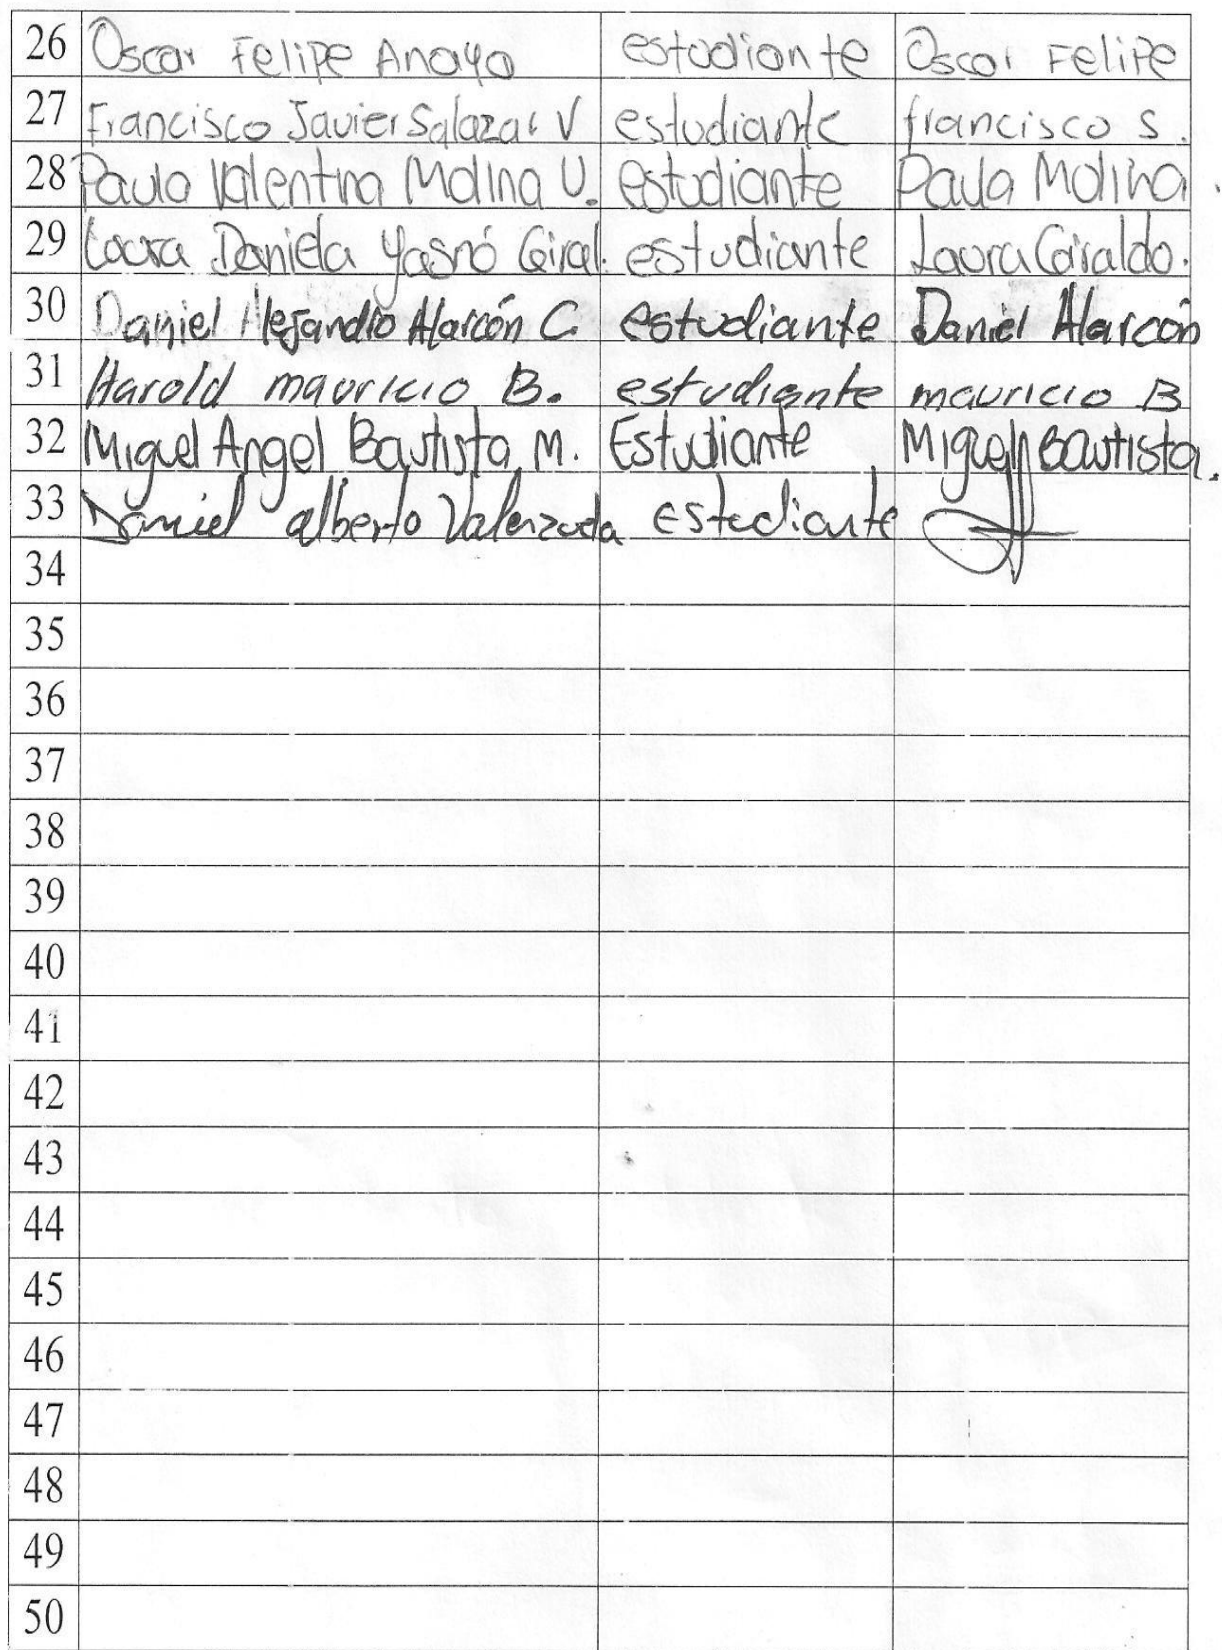 26 Oscar Felipe Anaya estudiante Oscar Felipe
27 Francisco Javier Salazar V estudiante francisco S.
28 Paula Valentina Molina U. estudiante Paula Molina.
29 Laura Daniela Yasnó Giral. estudiante Laura Giraldo.
30 Daniel Alejandro Alarcón C. estudiante Daniel Alarcón
31 Harold mauricio B. estudiante mauricio B
32 Miguel Angel Bautista M. Estudiante Miguel Bautista.
33 Daniel alberto Valenzuela estudiante
34
35
36
37
38
39
40
41
42
43
44
45
46
47
48
49
50